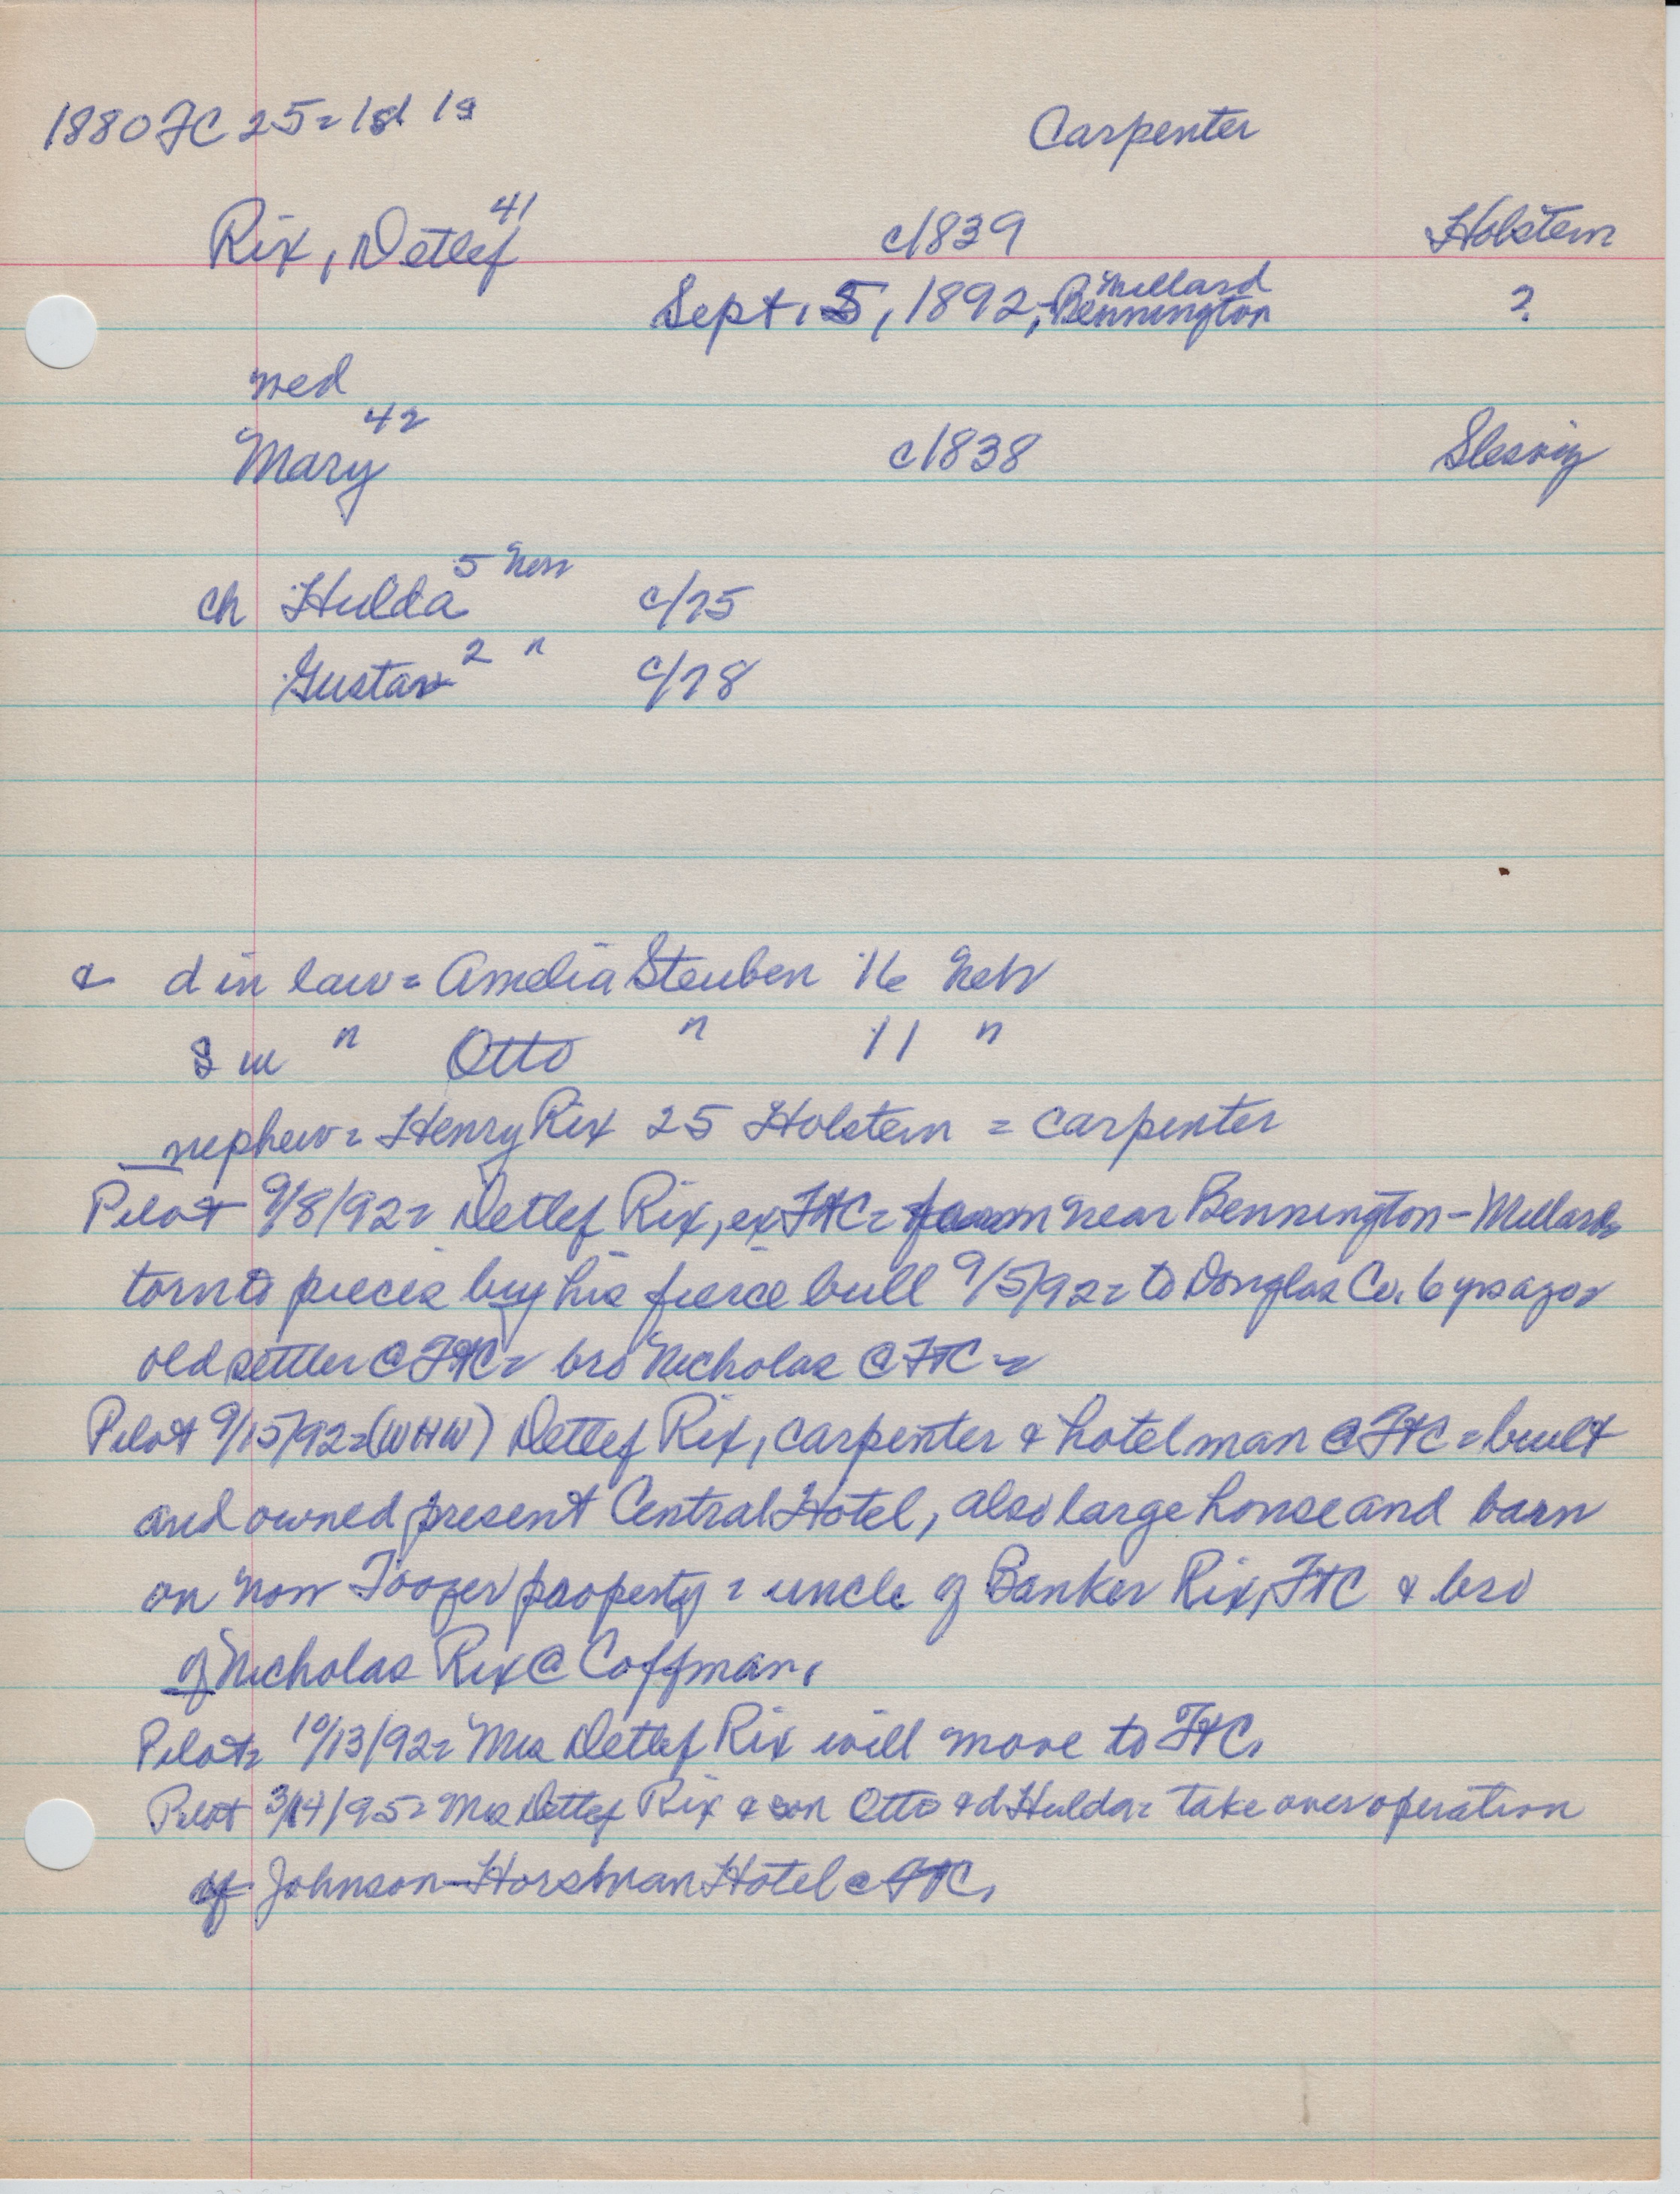 1880 FC 25 = 1st 1s
Carpenter
Rix, Detlef 41 c1839 Holstein
Sept. 5, 1892, Millard
Bennington ?
wed
Mary 42 c1838 Slesvig
ch Hulda 5 Neb c/75
Gustav 2 " c/78
& d in law = Amelia Steuben 16 Neb
s in " Otto " 11 "
nephew = Henry Rix 25 Holstein = carpenter
Pilot 9/8/92 = Detlef Rix, ex FtC = farm near Bennington - Millard
torn to pieces by his fierce bull 9/5/92 = to Douglas Co. 6 yrs ago =
old settler @ FtC = bro Nicholas @ FtC =
Pilot 9/15/92 = (WHW) Detlef Rix, carpenter & hotel man @ FtC = built
and owned present Central Hotel, also large house and barn
on now Toozer property = uncle of Banker Rix, FtC & bro
of Nicholas Rix @ Coffman.
Pilot = 10/13/92 = Mrs Detlef Rix will move to FtC.
Pilot 3/14/95 = Mrs Detlef Rix & son Otto & d Hulda = take over operation
of Johnson-Horstman Hotel @ FtC.